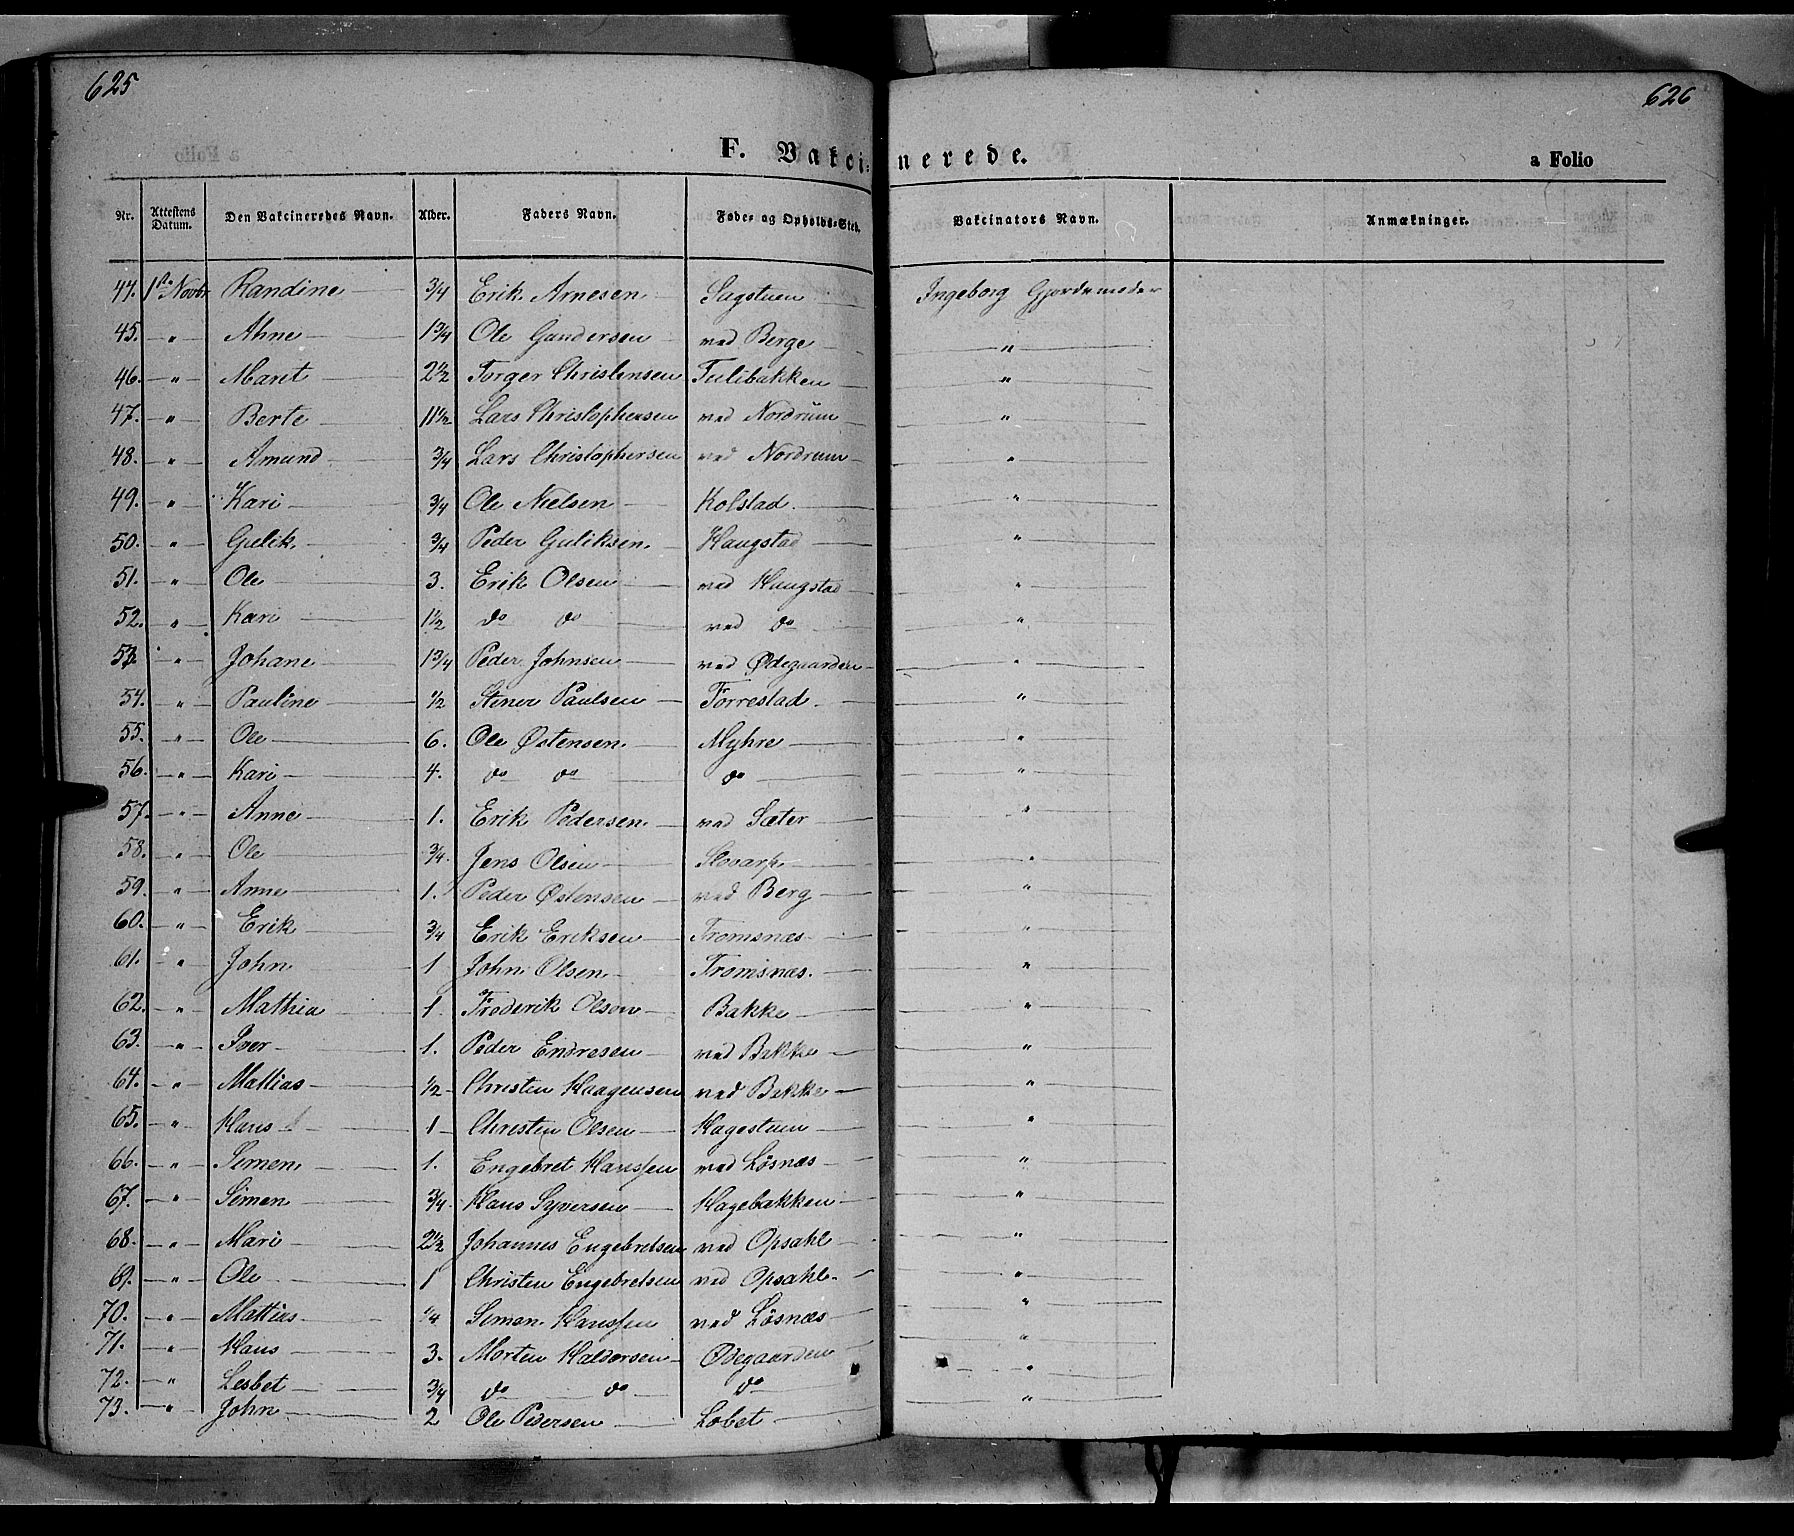 625
626
F. Vakcinerede.
a Folio
Nr. Attestens Datum. Den Vakcineredes Navn. Alder. Faders Navn. Føde- og Opholds-Sted. Vakcinators Navn. Anmærkninger.
44. 1ste Novbr Randine 3/4 Erik Arnesen Sagstuen Ingeborg Gjordemoder
45. " Ahne 1 3/4 Ole Gundersen ved Berge "
46. " Marit 2 1/2 Torger Christensen Tulibakken "
47. " Berte 11 1/2 Lars Christophersen ved Nordrum "
48. " Amund 3/4 Lars Christophersen ved Nordrum "
49. " Kari 3/4 Ole Nielsen Kolstad. "
50. " Gulik 3/4 Peder Guliksen. Haugstad "
51. " Ole 3. Erik Olsen ved Haugstad "
52. " Kari 1 1/2 do do ved do "
53. " Johane 1 3/4 Peder Johnsen ved Ødegaarden "
54. " Pauline 1/2 Stener Paulsen Torrestad. "
55. " Ole 6. Ole Østensen. Myhre "
56. " Kari 4. do do do "
57. " Anne 1. Erik Pedersen ved Sæter "
58. " Ole 3/4. Jens Olsen Slovarp "
59. " Anne 1. Peder Østensen ved Berg "
60. " Erik 3/4 Erik Eriksen Tromsnæs "
61. " John 1 John Olsen Tromsnæs. "
62. " Mathia 1. Frederik Olson Bakke "
63. " Iver 1. Peder Endresen ved Bakke "
64. " Mattias 1/2 Christen Haagensen ved Bakke "
65. " Hans 1 Christen Olsen Hagestuen "
66. " Simen 1. Engebret Hanssen ved Løsnæs "
67. " Simen 3/4. Hans Syversen Hagebakken "
68. " Mari 2 1/2 Johannes Engebretsen ved Opsahl "
69. " Ole 1 Christen Engebretsen ved Opsahl "
70. " Mattias 1/4 Simen Hanssen ved Løsnæs "
71. " Hans 3. Morten Haldorsen Ødegaarden "
72. " Lesbet 3/4 do do do "
73. " John 2 Ole Pedersen Lobet "